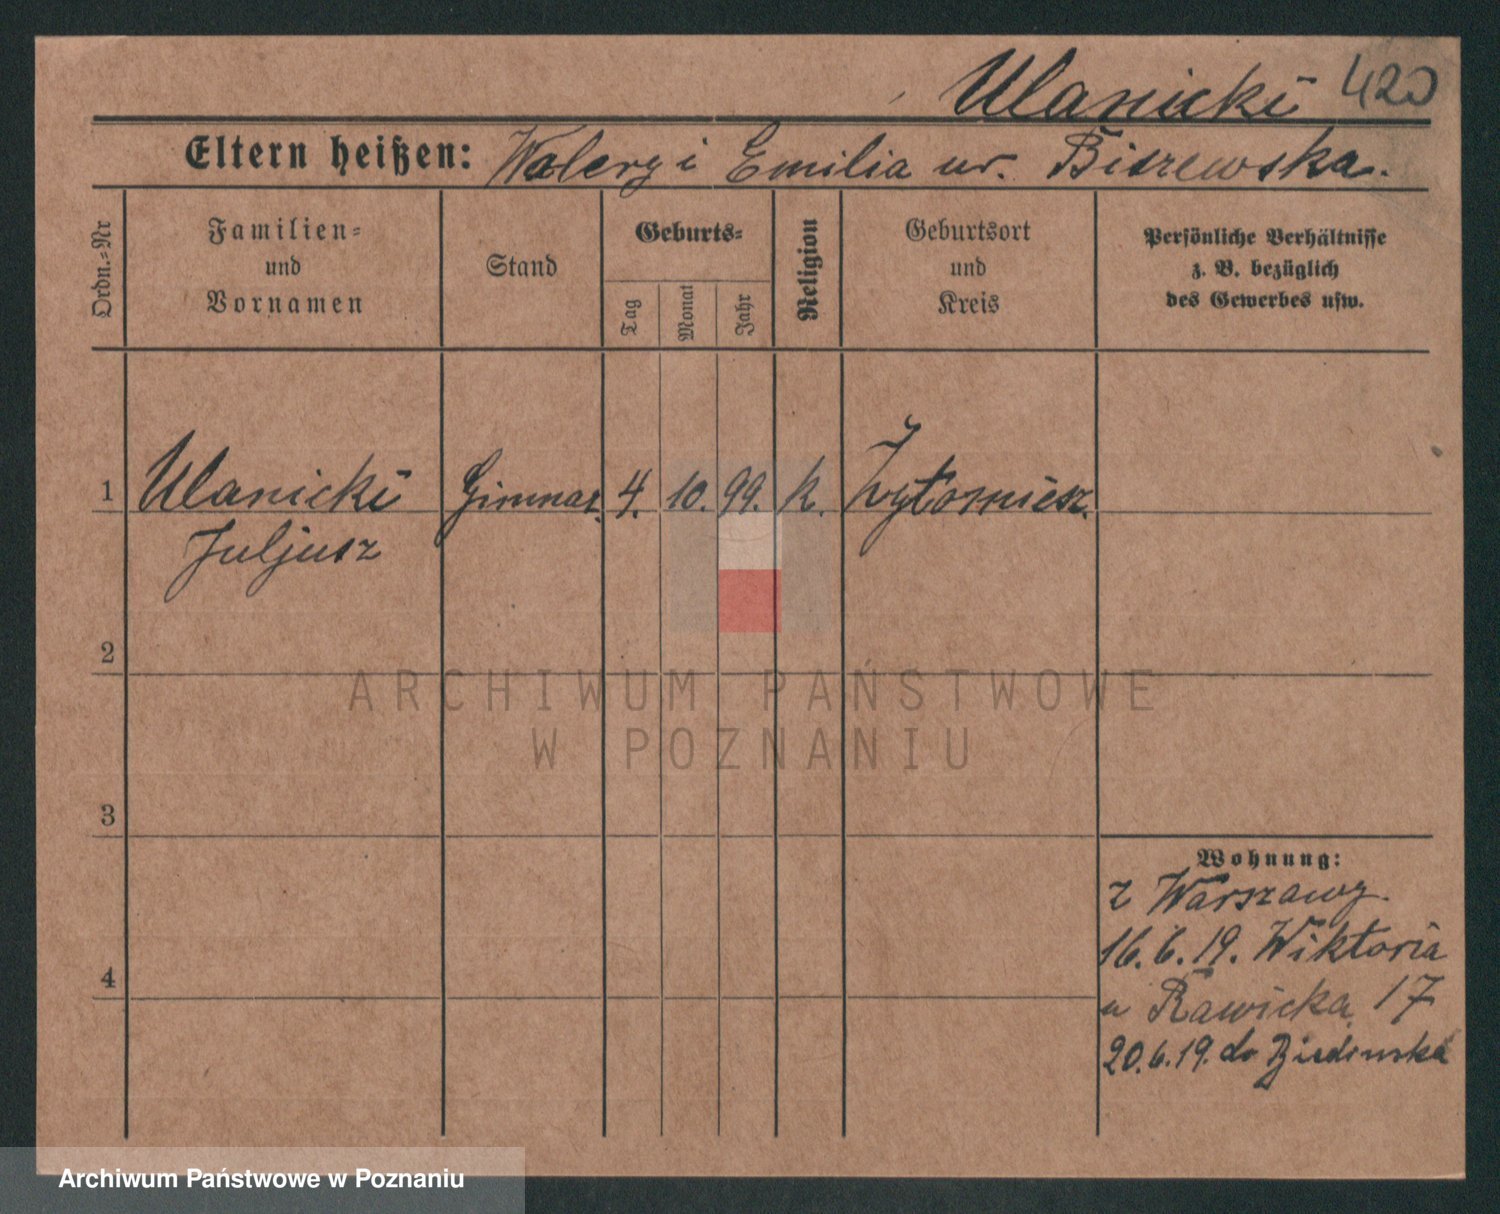 Ulanicki 420
Eltern heißen: Walery i Emilia ur. Biszewska.
Ordn.-Nr
Familien-
und
Vornamen
Stand
Geburts-
Tag
Monat
Jahr
Religion
Geburtsort
und
Kreis
Persönliche Verhältnisse
z. B. bezüglich
des Gewerbes usw.
1 Ulanicki Gimnaz. 4. 10. 99. k. Żytomierz.
Juljusz
2
ARCHIWUM PAŃSTWOWE
W POZNANIU
3
Wohnung:
z Warszawy.
16.6.19. Wiktoria
u Rawicka 17
4
20.6.19. do
Archiwum Państwowe w Poznaniu